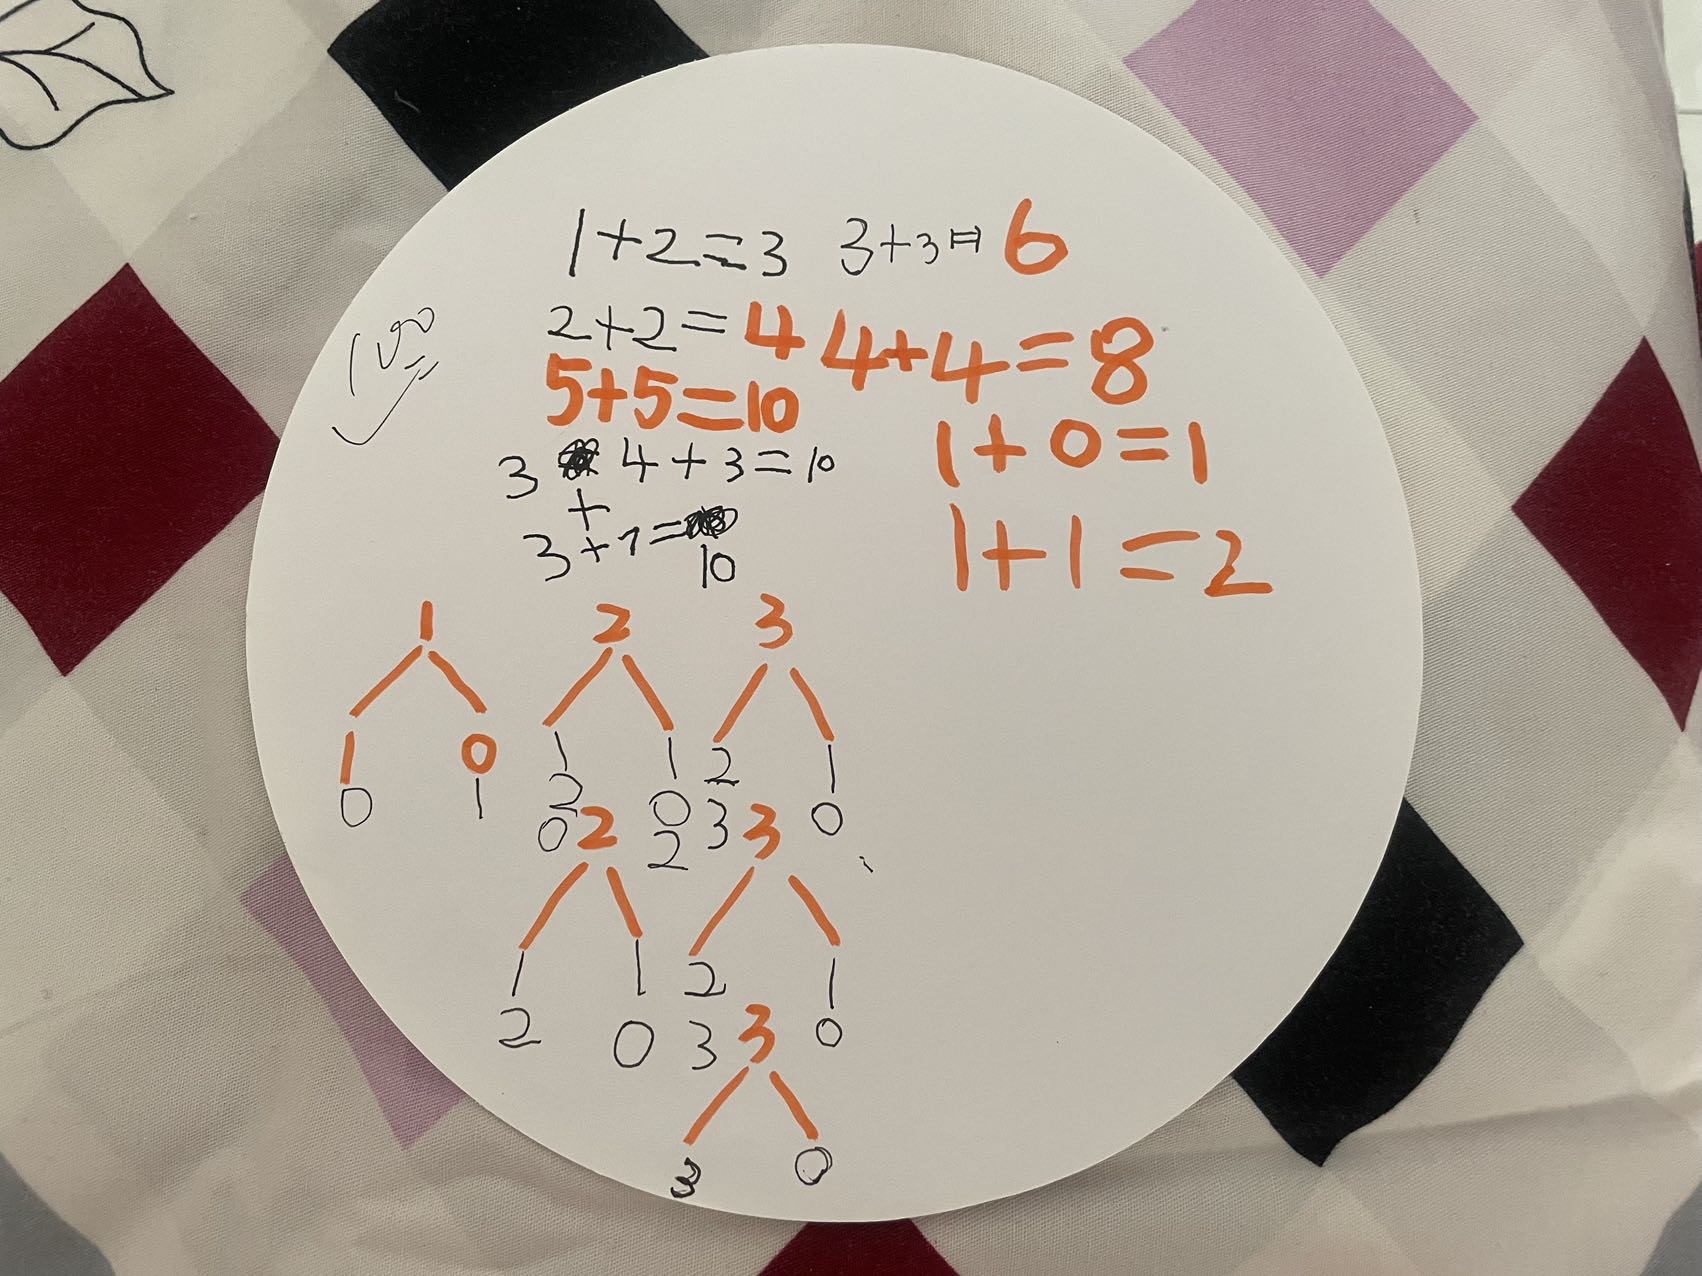 1+2=3 3+3=6
2+2=4 4+4=8
100
5+5=10
1+0=1
3 4+3=10
+
3+7=
10
1+1=2
1 2 3
1 0 1 1 2 1
0 1 2 0 3 0
0 2
2 3
1 1 2 1
2 0 3 0
3
3 0